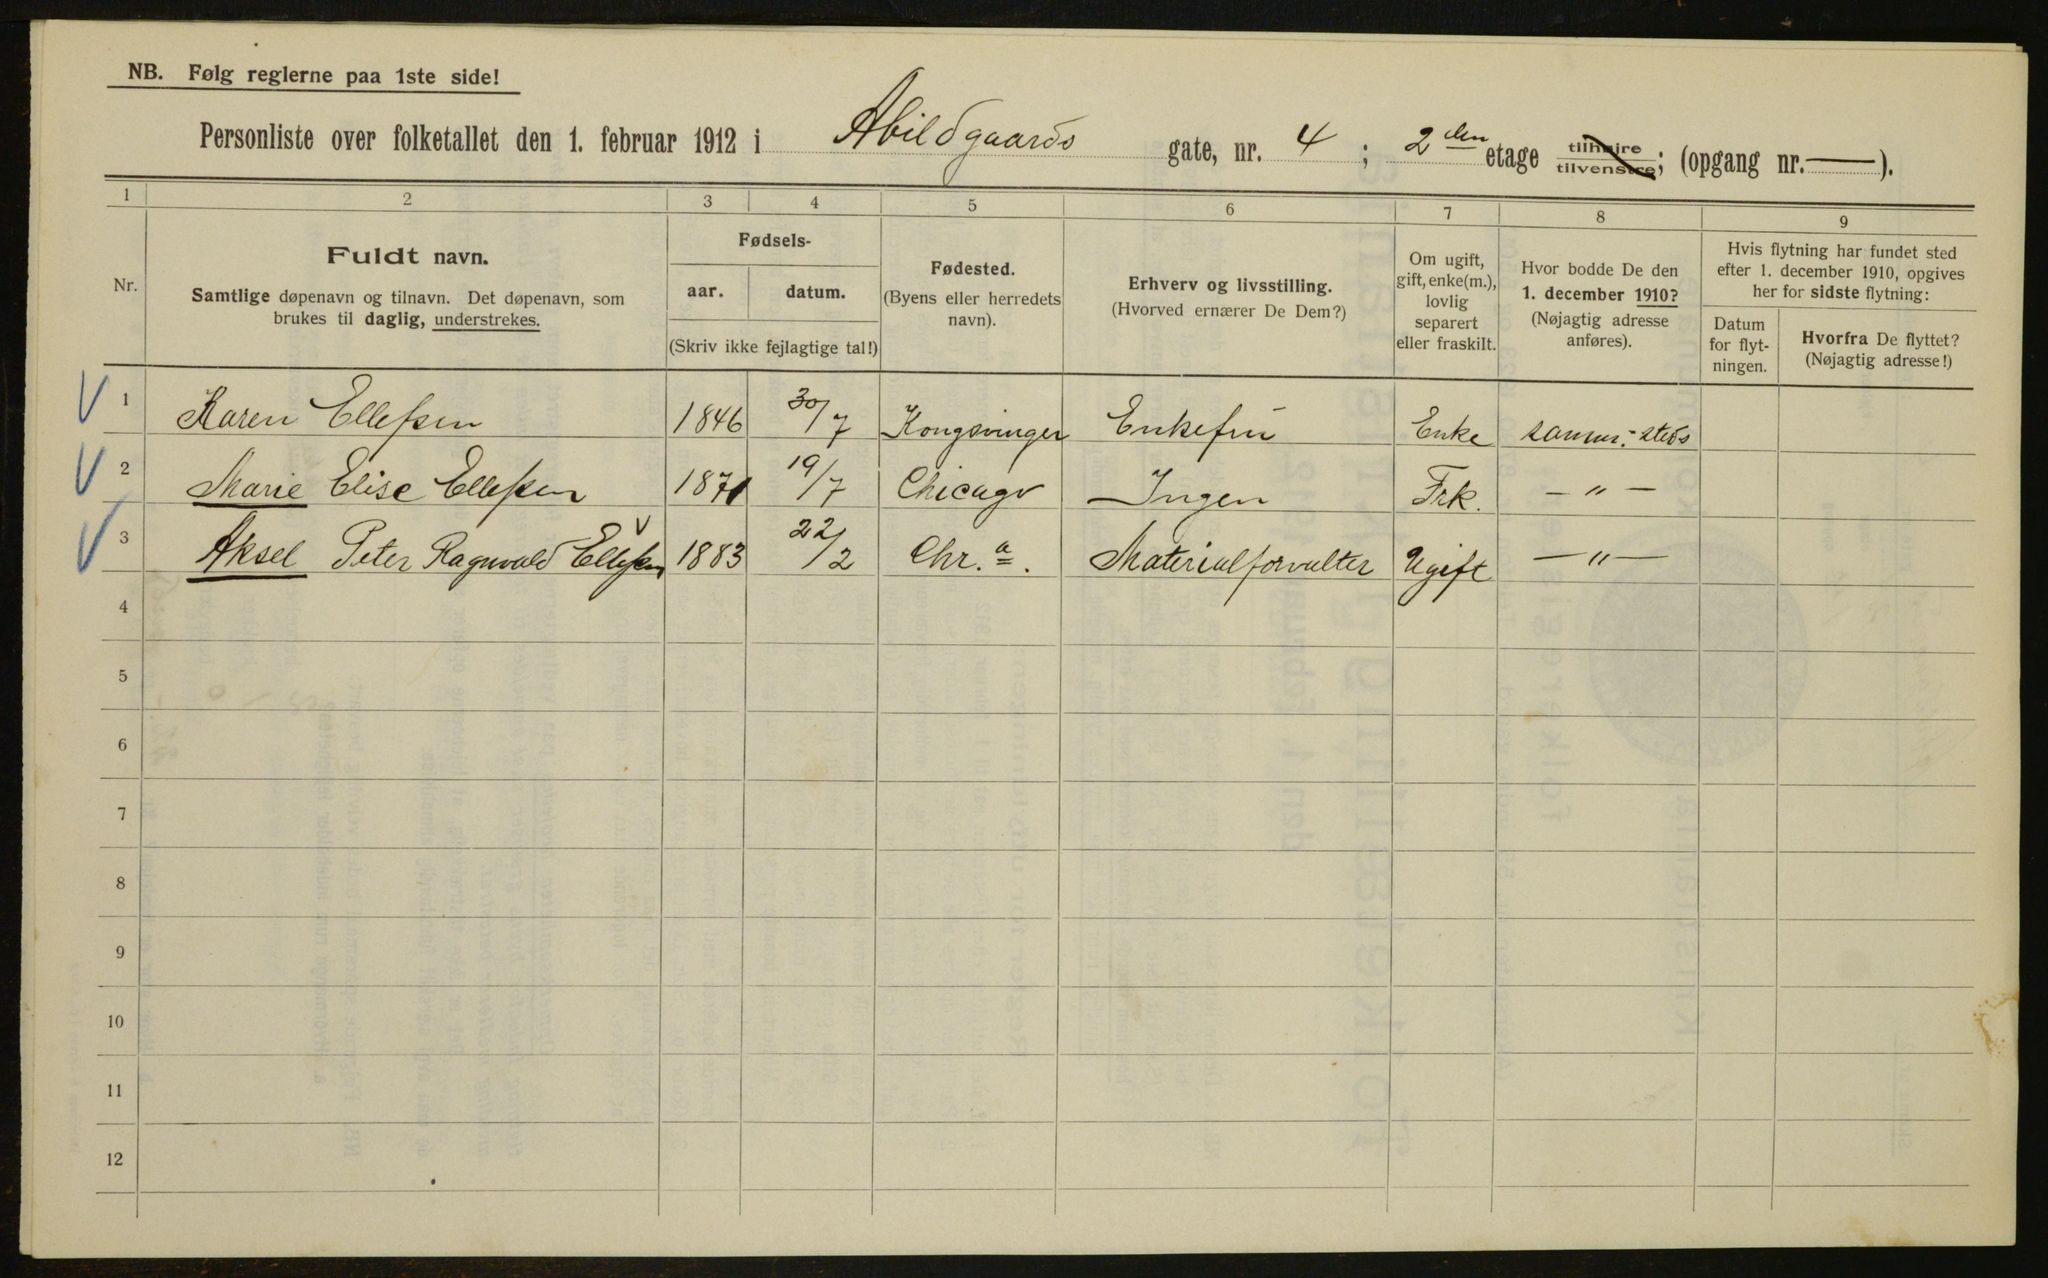 NB. Følg reglerne paa 1ste side!
Personliste over folketallet den 1. februar 1912 i Abildgaards gate, nr. 4; 2den etage tilhøire/tilvenstre; (opgang nr. —).
1 2 3 4 5 6 7 8 9
Nr.
Fuldt navn.
Samtlige døpenavn og tilnavn. Det døpenavn, som
brukes til daglig, understrekes.
Fødsels-
aar. datum.
(Skriv ikke fejlagtige tal!)
Fødested.
(Byens eller herredets
navn).
Erhverv og livsstilling.
(Hvorved ernærer De Dem?)
Om ugift,
gift, enke(m.),
lovlig
separert
eller fraskilt.
Hvor bodde De den
1. december 1910?
(Nøjagtig adresse
anføres).
Hvis flytning har fundet sted
efter 1. december 1910, opgives
her for sidste flytning:
Datum
for flyt-
ningen.
Hvorfra De flyttet?
(Nøjagtig adresse!)
1 Karen Ellefsen 1846 30/7 Kongsvinger Enkefru Enke samme-steds
2 Marie Elise Ellefsen 1871 19/7 Chicago Ingen Frk. — " —
3 Aksel Peter Ragnvald Ellefsen 1883 22/2 Chr.a. Materialforvalter Ugift — " —
4
5
6
7
8
9
10
11
12